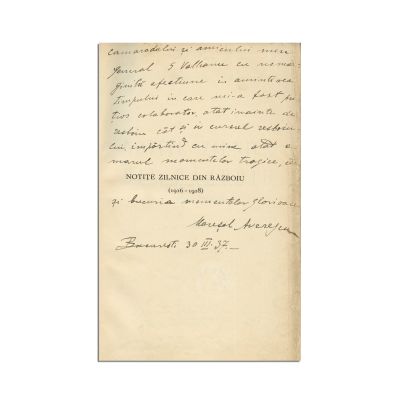 camaradului și amicului meu
General G Vallianu cu nemăr-
ginită afecțiune în amintirea
timpului în care mi-a fost pre-
țios colaborator, atât înainte de
resboiu cât și în cursul resboiu-
lui, împărțind cu mine atât a-
marul momentelor tragice, cât
NOTIȚE ZILNICE DIN RĂZBOIU
(1916-1918)
și bucuria momentelor glorioase
Mareșal Averescu
București 30 III. 37.